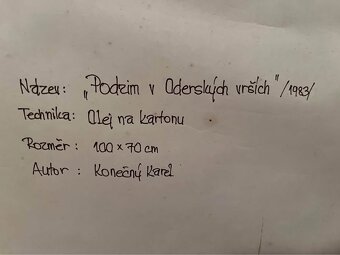 Název: „Podzim v Oderských vrších" /1983/
Technika: Olej na kartonu
Rozměr: 100 x 70 cm
Autor: Konečný Karel